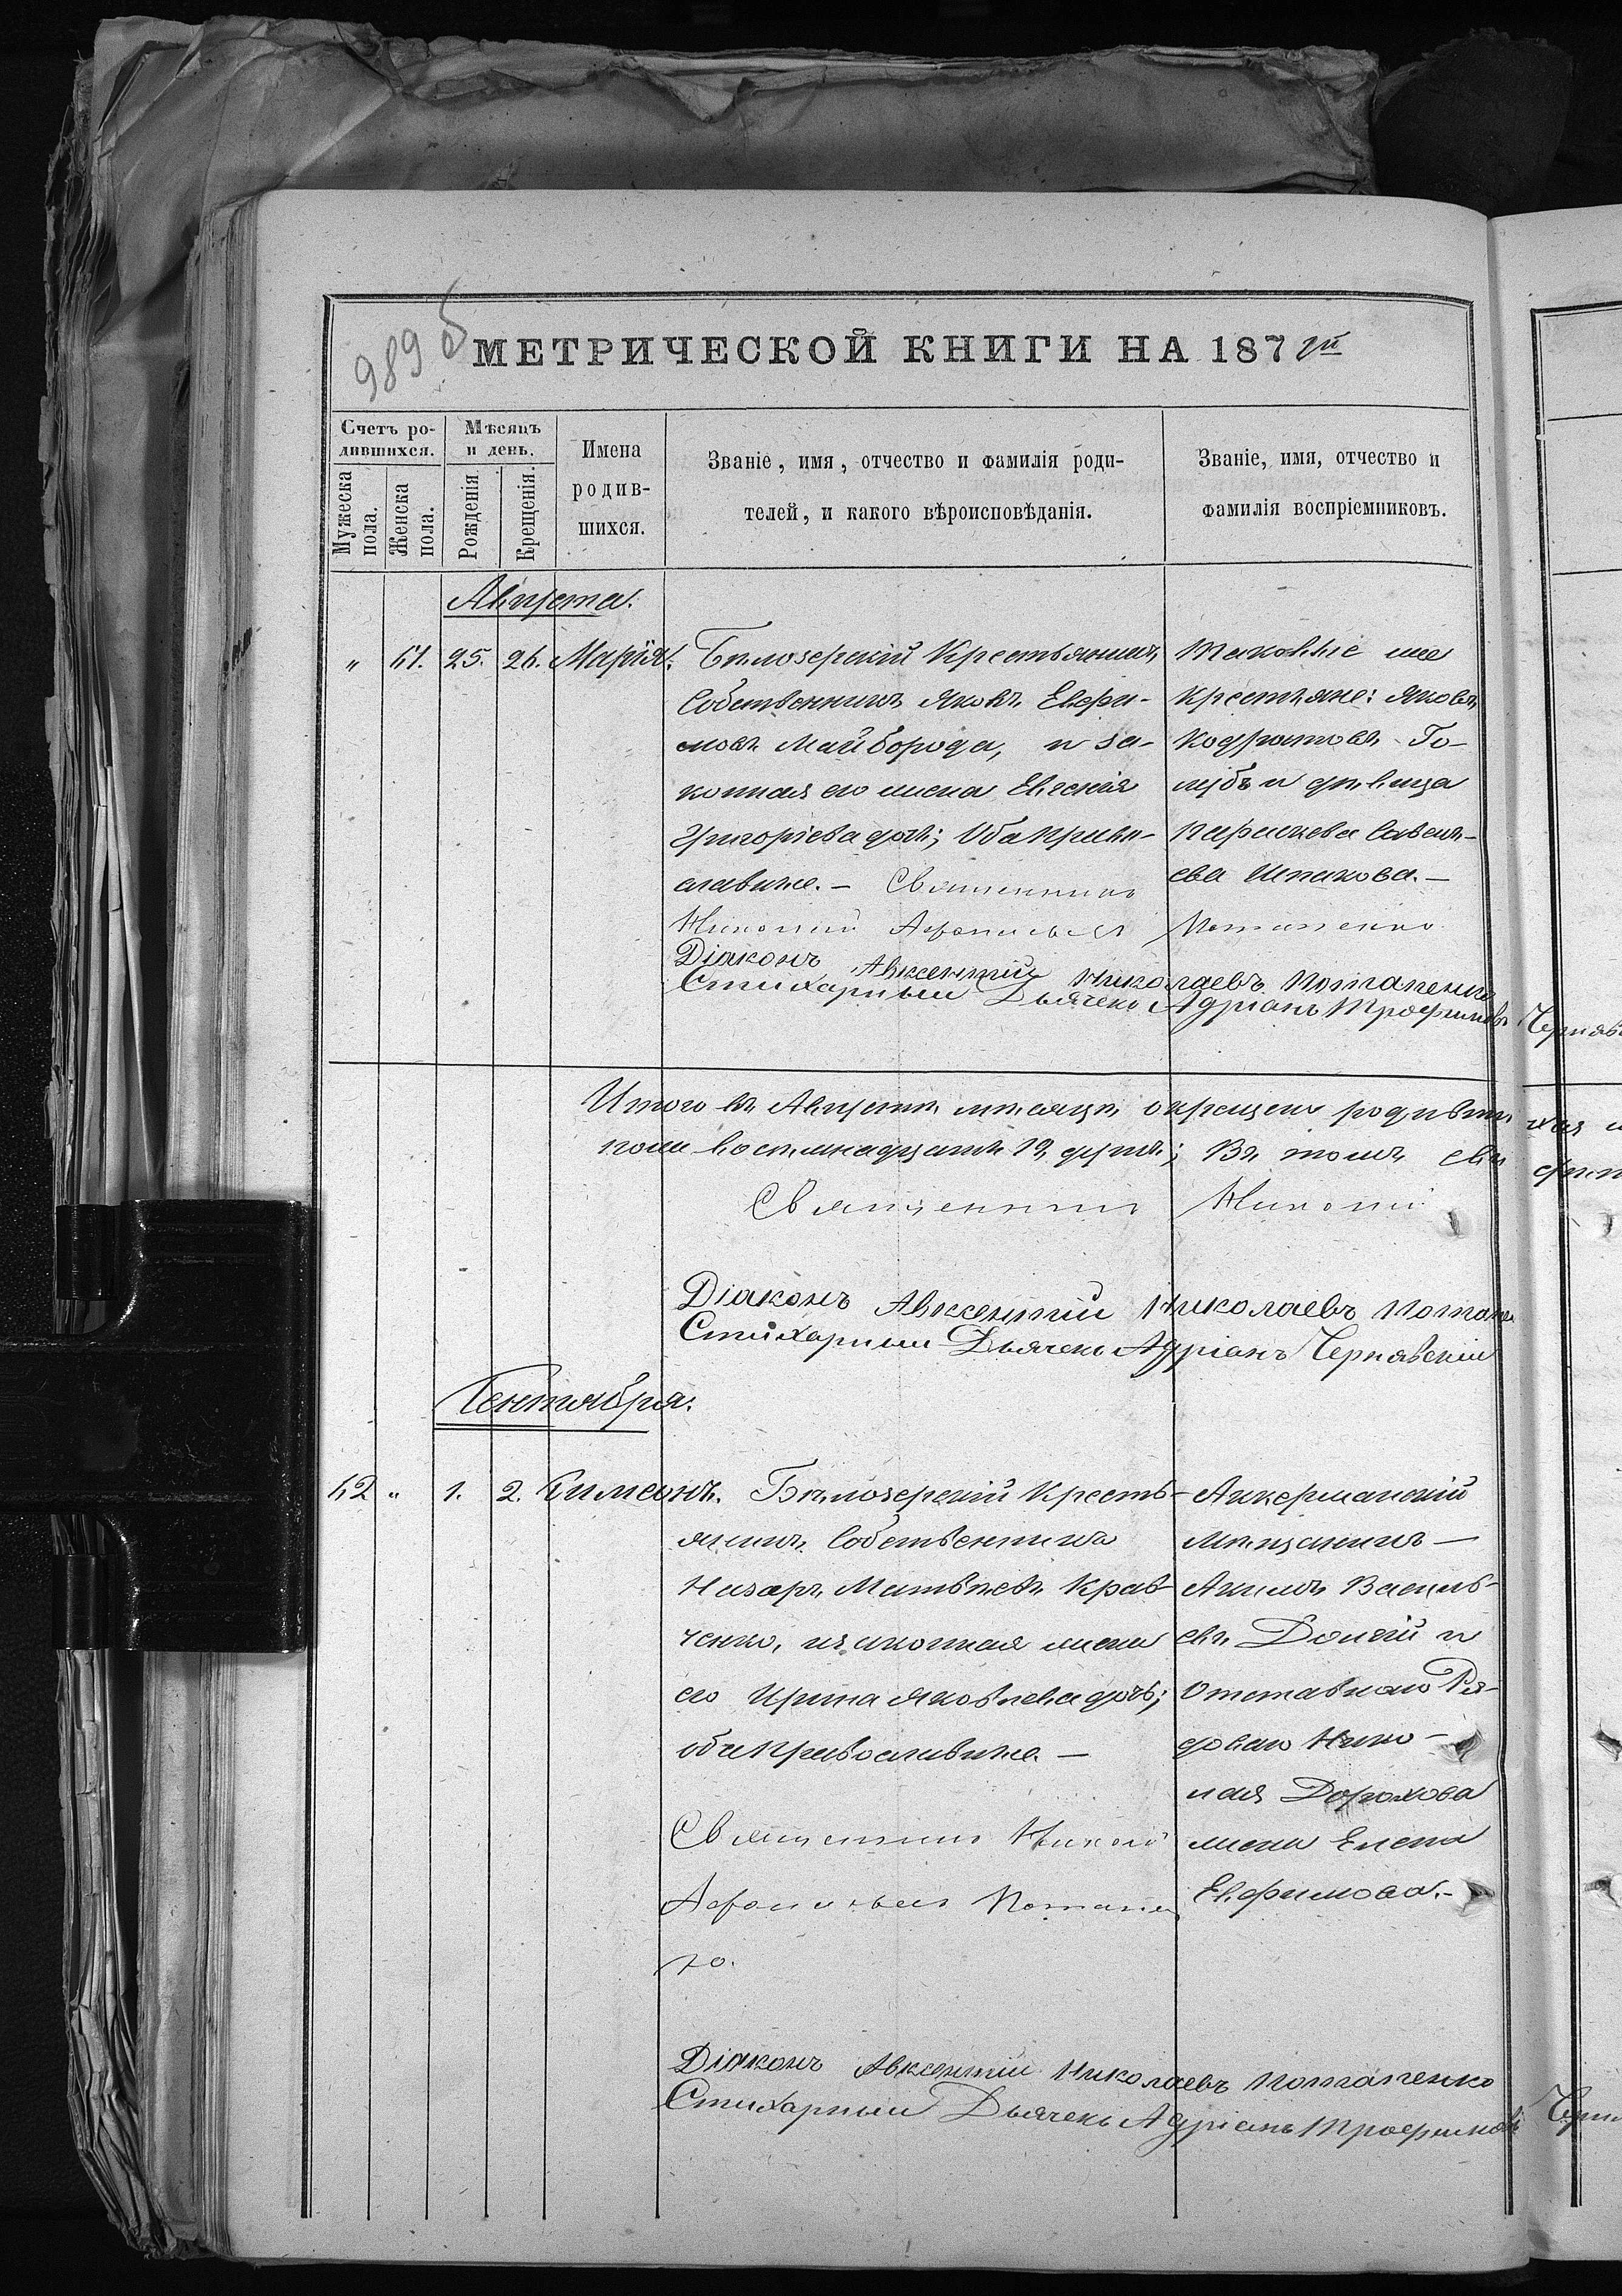 989 б
МЕТРИЧЕСКОЙ КНИГИ НА 187
Счетъ ро-
дившихся.
Мужеска
пола.
Женска
пола.
Мѣсяцъ
и день.
Рожденія
Крещенія.
Имена
родив-
шихся.
Званіе, имя, отчество и фамилія роди-
телей, и какого вѣроисповѣданія.
Званіе, имя, отчество и
фамилія воспріемниковъ.
Августа.
" 61. 25. 26. Марія.
Бѣлозерскій Крестьянинъ
Собственникъ Яковъ Евфи-
мовъ Майборода, и за-
конная его жена Евгенія
Григоріева дочь; Оба Право-
славные. – Священникъ
Николай Афанасьевъ Потапенко
Діаконъ Авксентій Николаевъ Потапенко
Стихарный Дьячекъ Адріанъ Трофимовъ
Таковые же
крестьяне: Яковъ
Кодратовъ Го-
лубъ и дѣвица
Савель-
ева Шпакова. –
Итого въ Августѣ мѣсяцѣ окрещено родивши
восемнадцать душъ; Въ томъ сви
Священникъ Николай
Діаконъ Авксентій Николаевъ Потапен
Стихарный Дьячекъ Адріанъ Чернявскій
Сентября.
62 " 1. 2. Симеонъ.
Бѣлозерскій Кресть-
янинъ Собственникъ
Назаръ Матвѣевъ Крав-
ченко, и законная жена
его Ирина Яковлева дочь;
оба Православные. –
Священникъ Николай
Афанасьевъ Потапен
ко.
Діаконъ Авксентій Николаевъ Потапенко
Стихарный Дьячекъ Адріанъ Трофимовъ
Аккерманскій
Мѣщанинъ –
Акимъ Василь-
евъ Долгій и
Отставного Ря-
дового Нико-
лая Дорохова
жена Елена
Евфимова. –